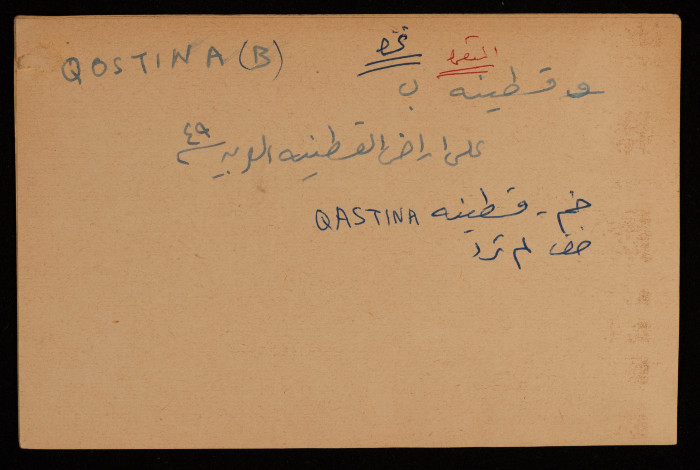 QOSTINA (B)
قسطينه ب
على اراضي القسطينه العربيه ٤٩
خم - قسطينه QASTINA
خف لم ترد